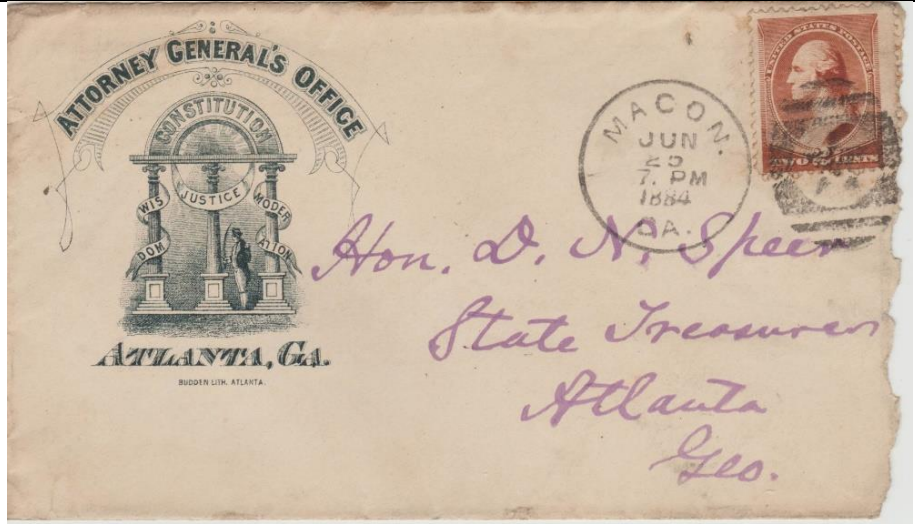 ATTORNEY GENERAL'S OFFICE
CONSTITUTION
WIS DOM
JUSTICE
MODER ATION
ATLANTA, GA.
MACON.
JUN
25
7. PM
1884
GA.
UNITED STATES POSTAGE
TWO CENTS
Hon. D. N. Speer
State Treasurer
Atlanta
Geo.